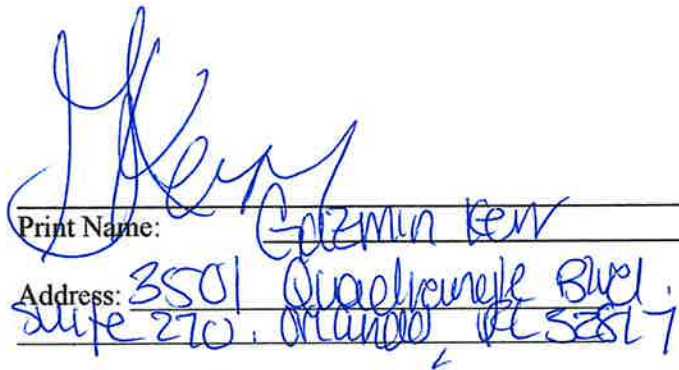 Print Name: Gazmin Kerr
Address: 3501 Quadrangle Blvd.
Suite 270. Orlando, FL 32817